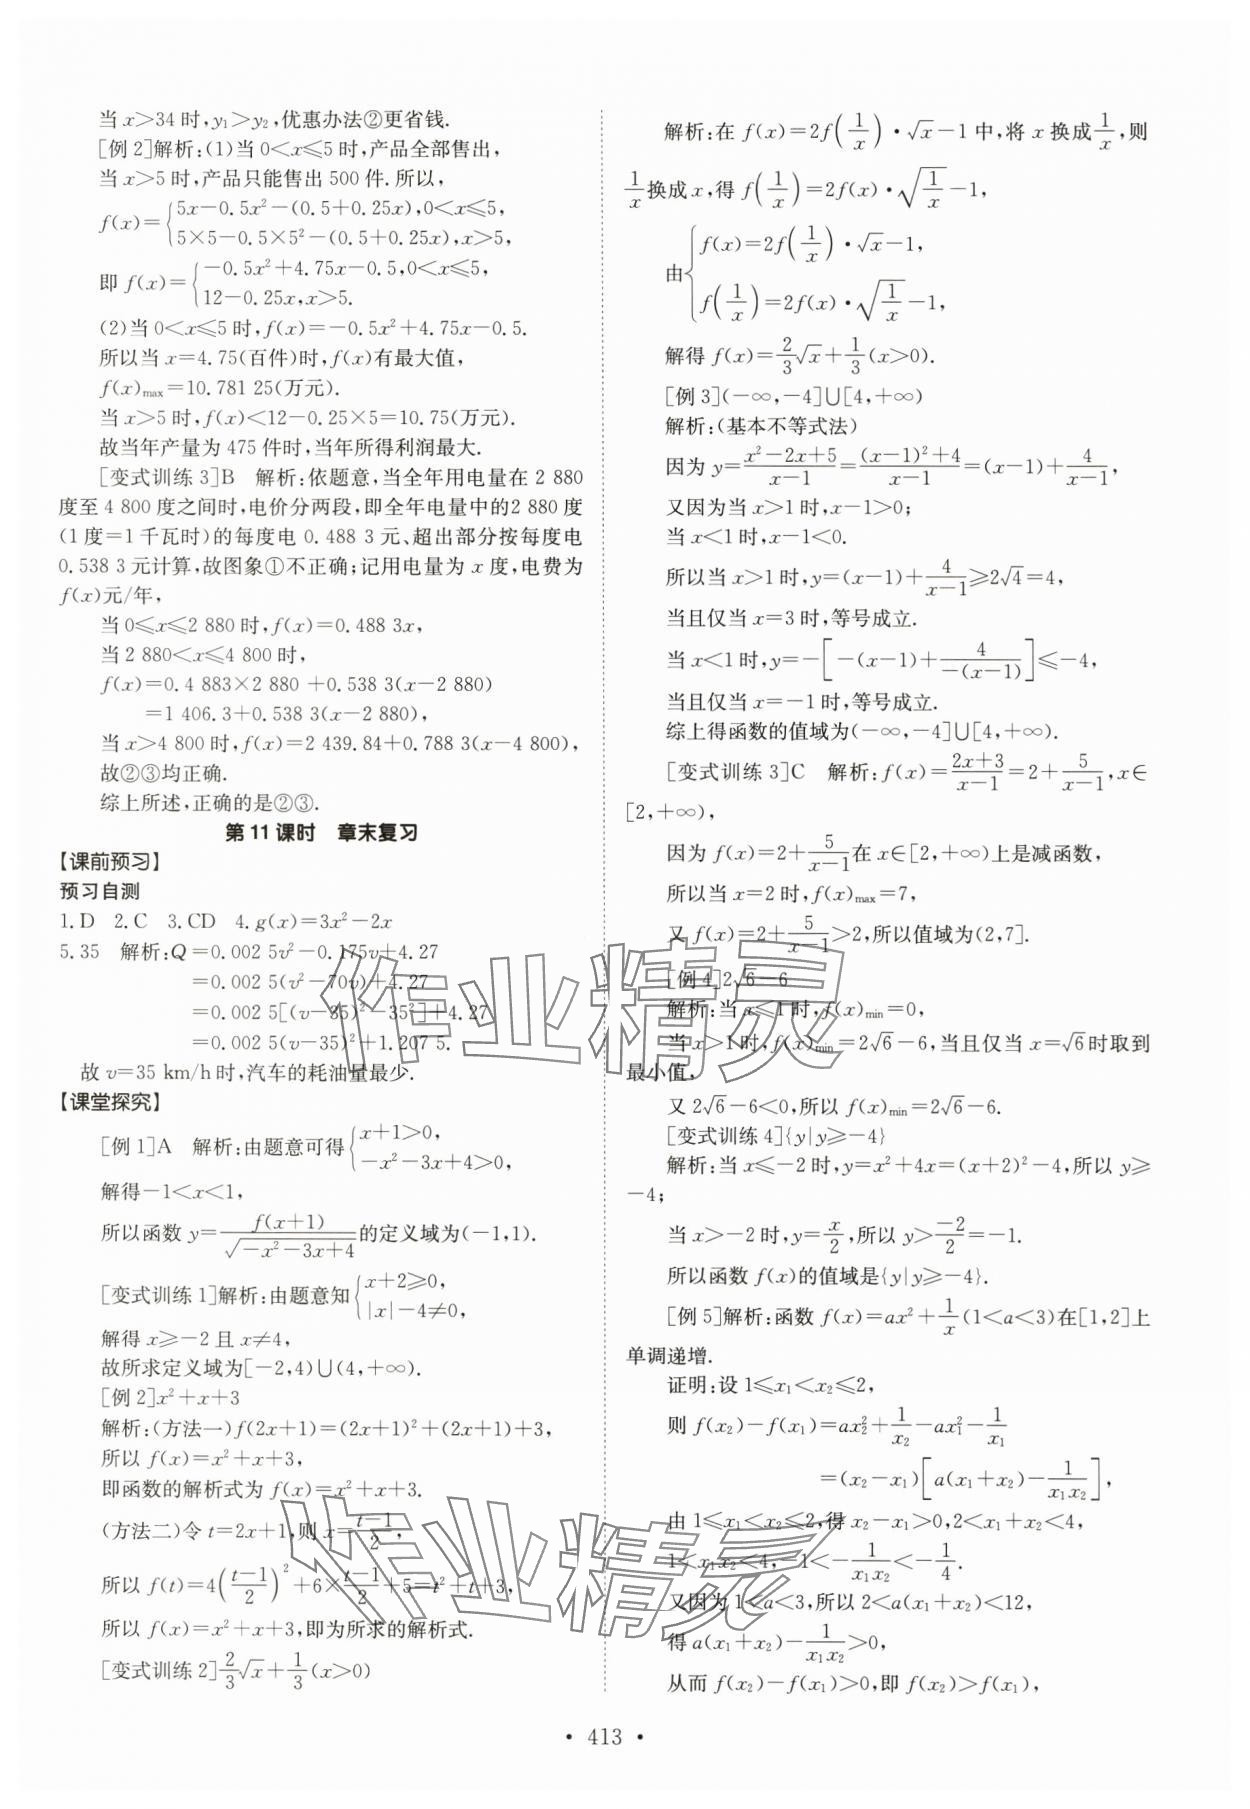 当 x>34 时,y₁>y₂,优惠办法②更省钱.
[例 2]解析:(1)当 0<x≤5 时,产品全部售出,
当 x>5 时,产品只能售出 500 件.所以,
f(x)={5x-0.5x²-(0.5+0.25x),0<x≤5,
5×5-0.5×5²-(0.5+0.25x),x>5,
即 f(x)={-0.5x²+4.75x-0.5,0<x≤5,
12-0.25x,x>5.
(2)当 0<x≤5 时,f(x)=-0.5x²+4.75x-0.5.
所以当 x=4.75(百件)时,f(x)有最大值,
f(x)max=10.781 25(万元).
当 x>5 时,f(x)<12-0.25×5=10.75(万元).
故当年产量为 475 件时,当年所得利润最大.
[变式训练 3]B 解析:依题意,当全年用电量在 2 880
度至 4 800 度之间时,电价分两段,即全年电量中的 2 880 度
(1 度=1 千瓦时)的每度电 0.488 3 元、超出部分按每度电
0.538 3 元计算,故图象①不正确;记用电量为 x 度,电费为
f(x)元/年,
当 0≤x≤2 880 时,f(x)=0.488 3x,
当 2 880<x≤4 800 时,
f(x)=0.4 883×2 880 +0.538 3(x-2 880)
=1 406.3+0.538 3(x-2 880),
当 x>4 800 时,f(x)=2 439.84+0.788 3(x-4 800),
故②③均正确.
综上所述,正确的是②③.
第 11 课时 章末复习
【课前预习】
预习自测
1.D 2.C 3.CD 4.g(x)=3x²-2x
5.35 解析:Q=0.002 5v²-0.175v+4.27
=0.002 5(v²-70v)+4.27
=0.002 5[(v-35)²-35²]+4.27
=0.002 5(v-35)²+1.207 5.
故 v=35 km/h 时,汽车的耗油量最少.
【课堂探究】
[例 1]A 解析:由题意可得{x+1>0,
-x²-3x+4>0,
解得-1<x<1,
所以函数 y=f(x+1)/√(-x²-3x+4)的定义域为(-1,1).
[变式训练 1]解析:由题意知{x+2≥0,
|x|-4≠0,
解得 x≥-2 且 x≠4,
故所求定义域为[-2,4)∪(4,+∞).
[例 2]x²+x+3
解析:(方法一)f(2x+1)=(2x+1)²+(2x+1)+3,
所以 f(x)=x²+x+3,
即函数的解析式为 f(x)=x²+x+3.
(方法二)令 t=2x+1,则 x=(t-1)/2,
所以 f(t)=4((t-1)/2)²+6×(t-1)/2+5=t²+t+3,
所以 f(x)=x²+x+3,即为所求的解析式.
[变式训练 2]2/3√x+1/3(x>0)
解析:在 f(x)=2f(1/x)·√x-1 中,将 x 换成1/x,则
1/x换成 x,得 f(1/x)=2f(x)·√(1/x)-1,
由{f(x)=2f(1/x)·√x-1,
f(1/x)=2f(x)·√(1/x)-1,
解得 f(x)=2/3√x+1/3(x>0).
[例 3](-∞,-4]∪[4,+∞)
解析:(基本不等式法)
因为 y=(x²-2x+5)/(x-1)=((x-1)²+4)/(x-1)=(x-1)+4/(x-1),
又因为当 x>1 时,x-1>0;
当 x<1 时,x-1<0.
所以当 x>1 时,y=(x-1)+4/(x-1)≥2√4=4,
当且仅当 x=3 时,等号成立.
当 x<1 时,y=-[-(x-1)+4/(-(x-1))]≤-4,
当且仅当 x=-1 时,等号成立.
综上得函数的值域为(-∞,-4]∪[4,+∞).
[变式训练 3]C 解析:f(x)=(2x+3)/(x-1)=2+5/(x-1),x∈
[2,+∞),
因为 f(x)=2+5/(x-1)在 x∈[2,+∞)上是减函数,
所以当 x=2 时,f(x)max=7,
又 f(x)=2+5/(x-1)>2,所以值域为(2,7].
[例 4]2√6-6
解析:当 x≤1 时,f(x)min=0,
当 x>1 时,f(x)min=2√6-6,当且仅当 x=√6时取到
最小值,
又 2√6-6<0,所以 f(x)min=2√6-6.
[变式训练 4]{y|y≥-4}
解析:当 x≤-2 时,y=x²+4x=(x+2)²-4,所以 y≥
-4;
当 x>-2 时,y=x/2,所以 y>-2/2=-1.
所以函数 f(x)的值域是{y|y≥-4}.
[例 5]解析:函数 f(x)=ax²+1/x(1<a<3)在[1,2]上
单调递增.
证明:设 1≤x₁<x₂≤2,
则 f(x₂)-f(x₁)=ax₂²+1/x₂-ax₁²-1/x₁
=(x₂-x₁)[a(x₁+x₂)-1/(x₁x₂)],
由 1≤x₁<x₂≤2,得 x₂-x₁>0,2<x₁+x₂<4,
1<x₁x₂<4,-1<-1/(x₁x₂)<-1/4.
又因为 1<a<3,所以 2<a(x₁+x₂)<12,
得 a(x₁+x₂)-1/(x₁x₂)>0,
从而 f(x₂)-f(x₁)>0,即 f(x₂)>f(x₁),
· 413 ·
作业精灵
作业精灵